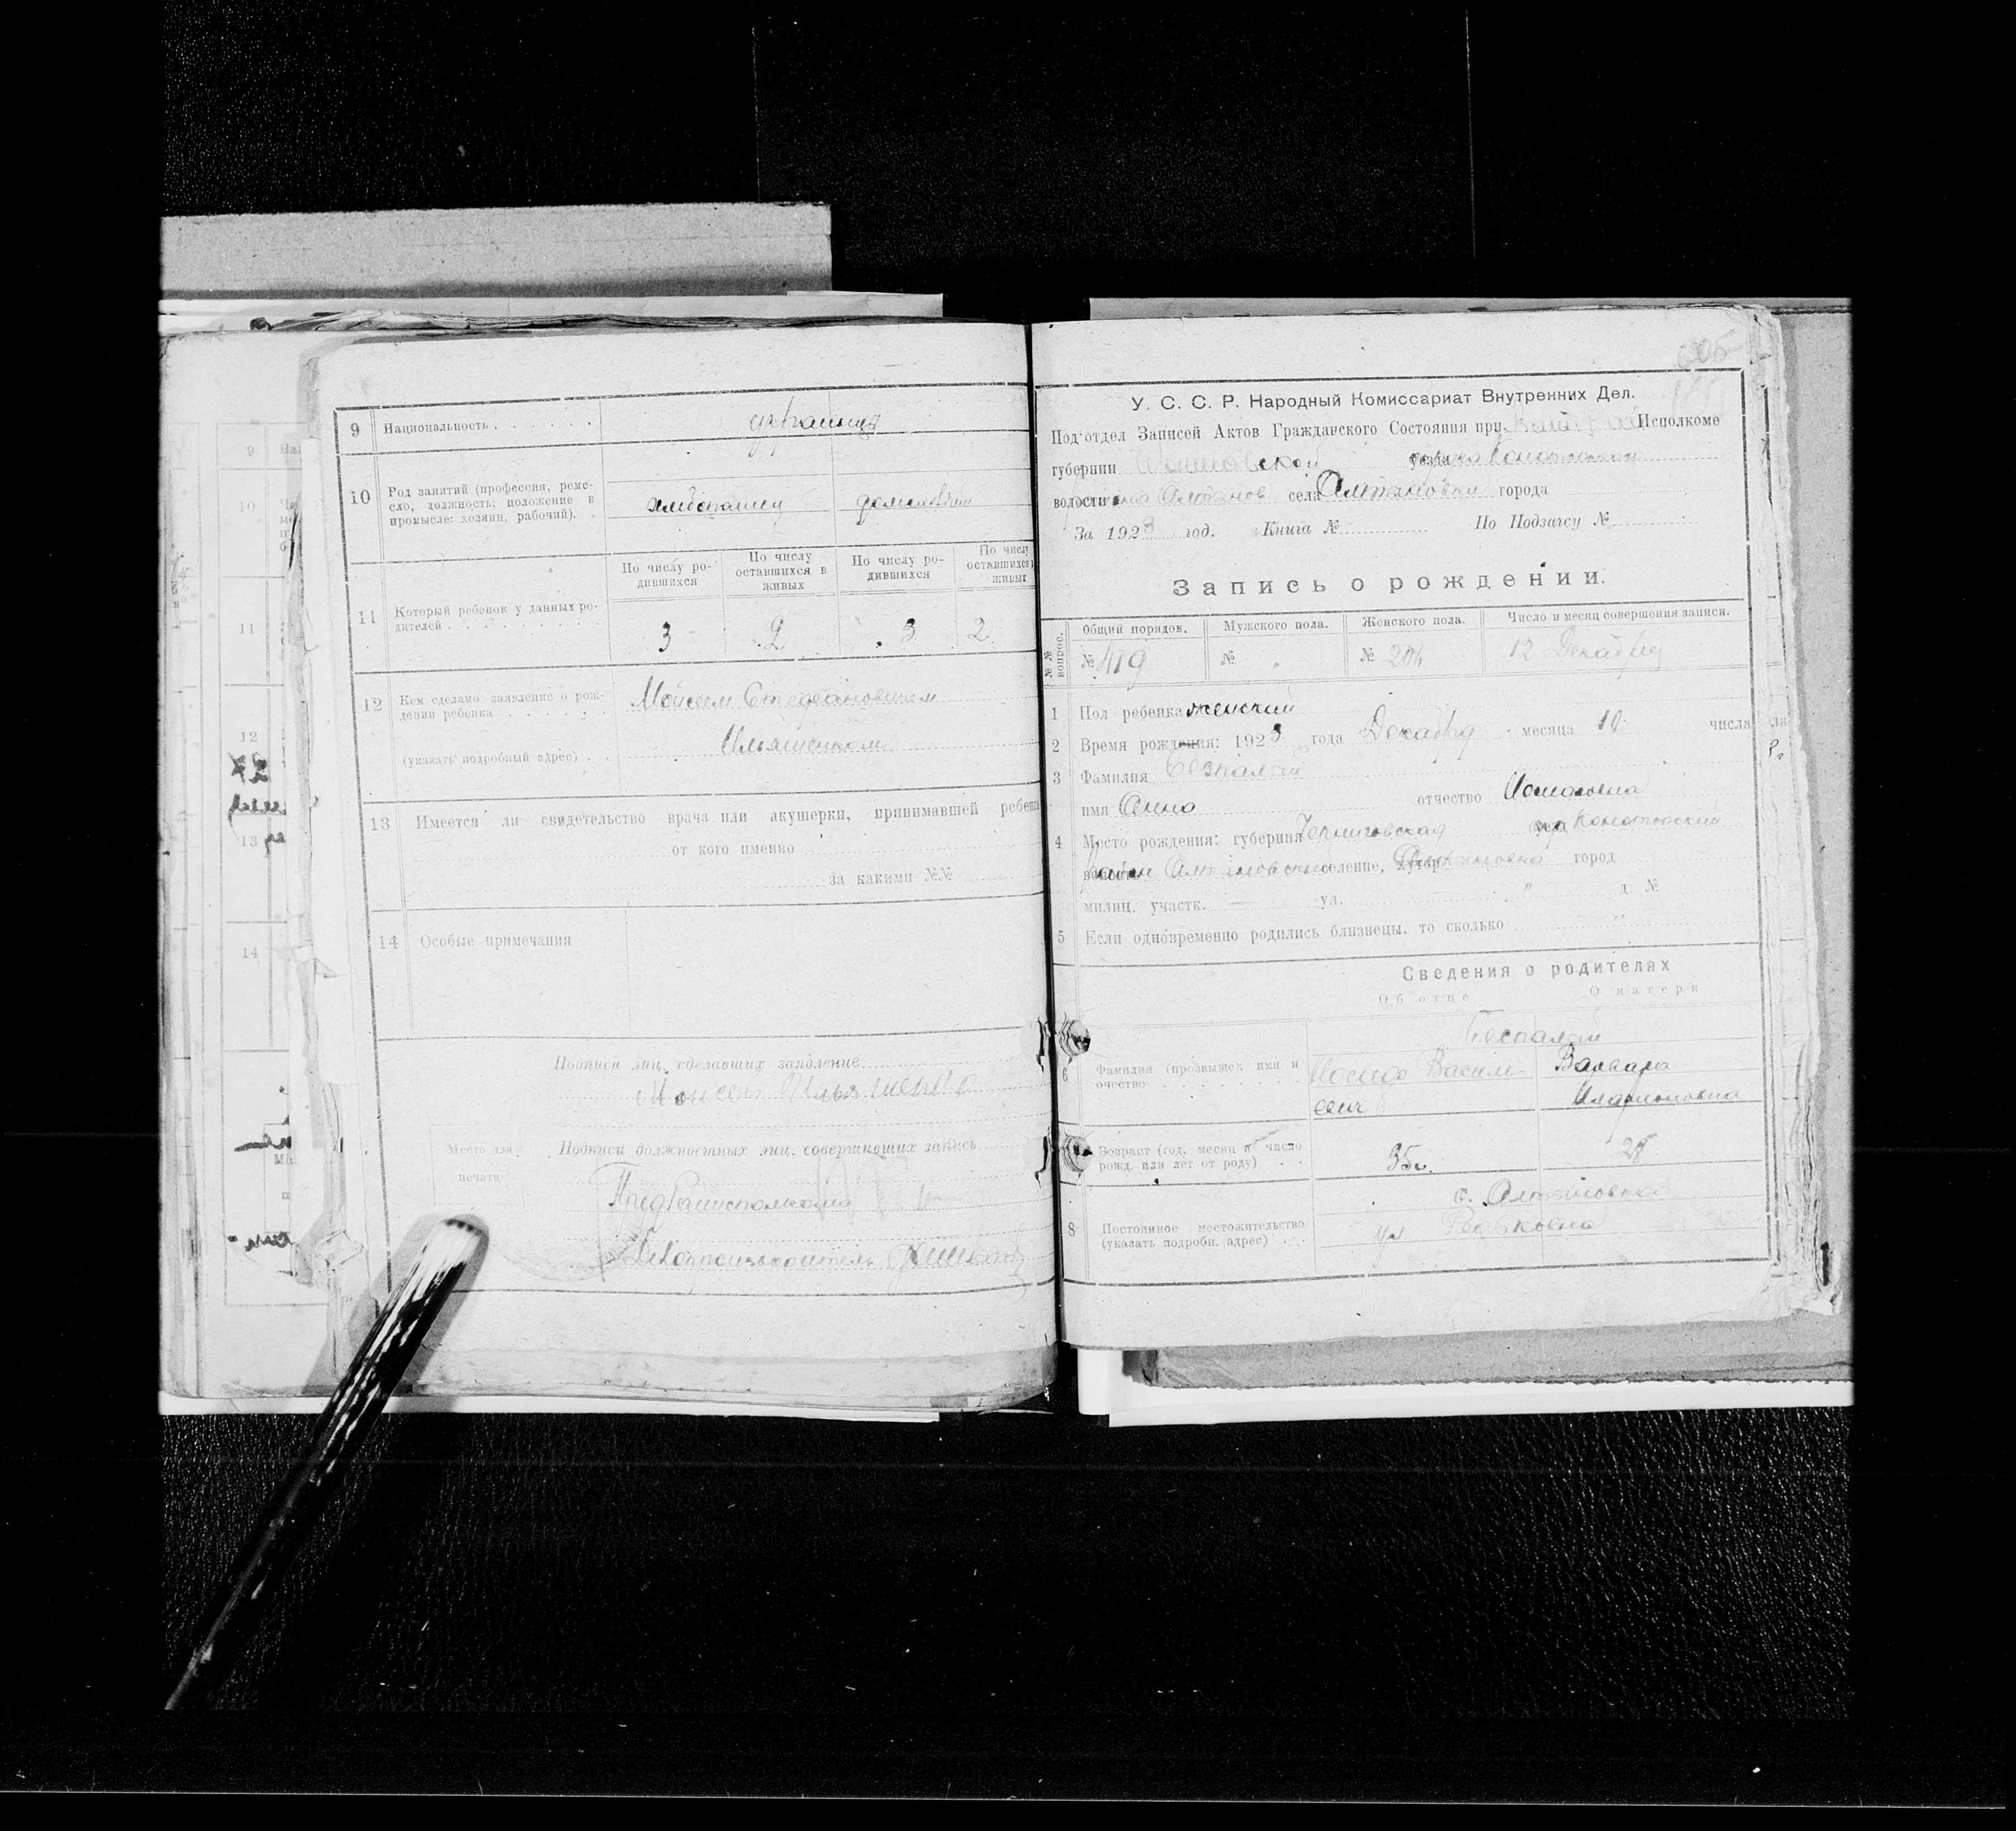 9 Национальность . . . . . . украинцы
10 Род занятий (профессия, реме-
сло, должность; положение в
промысле: хозяин, рабочий). .
По числу ро-
дившихся
По числу
оставшихся в
живых
По числу ро-
дившихся
По числу
оставшихся в
живых
11 Который ребенок у данных ро-
дителей . . . . . . . . . .
3 2 3 2
12 Кем сделано заявление о рож-
дении ребенка . . . . . . Мойсеем Стефановичем
(указать подробный адрес) . . Ильяшенком
13 Имеется ли свидетельство врача или акушерки, принимавшей ребенка
от кого именно
за какими №№
14 Особые примечания
Подписи лиц, сделавших заявление
Моисей Ильяшенко
Место для
печати
Подписи должностных лиц, совершивших запись
ПредРайисполкома
Делопроизводитель
9
10
11
12
13
14
У. С. С. Р. Народный Комиссариат Внутренних Дел.
Под‘отдел Записей Актов Гражданского Состояния при Исполкоме
губернии уезда
волости села Алтыновки города
За 1923 год. Книга № По Подзагсу №
Запись о рождении.
№№ вопрос.
Общий порядок. Мужского пола. Женского пола. Число и месяц совершения записи.
№ 419 № № 206 12 Декабря
1 Пол ребенка женский
2 Время рождения: 1923 года Декабря месяца 10 числа
3 Фамилия Беспалая
имя Анна отчество Иосифовна
4 Место рождения: губерния Черниговская Конотопский
селение, хутор Алтыновка город
милиц. участк. — ул. " д №
5 Если одновременно родились близнецы, то сколько "
Сведения о родителях
Об отце О матери
6 Фамилия (прозвище), имя и
очество
Беспалый
Иосиф Василь- Варвара
евич Иларионовна
Возраст (год, месяц и число
рожд. или лет от роду) . . 35г. 28
8 Постоянное местожительство
(указать подробн. адрес) . . .
с. Алтыновка
ул